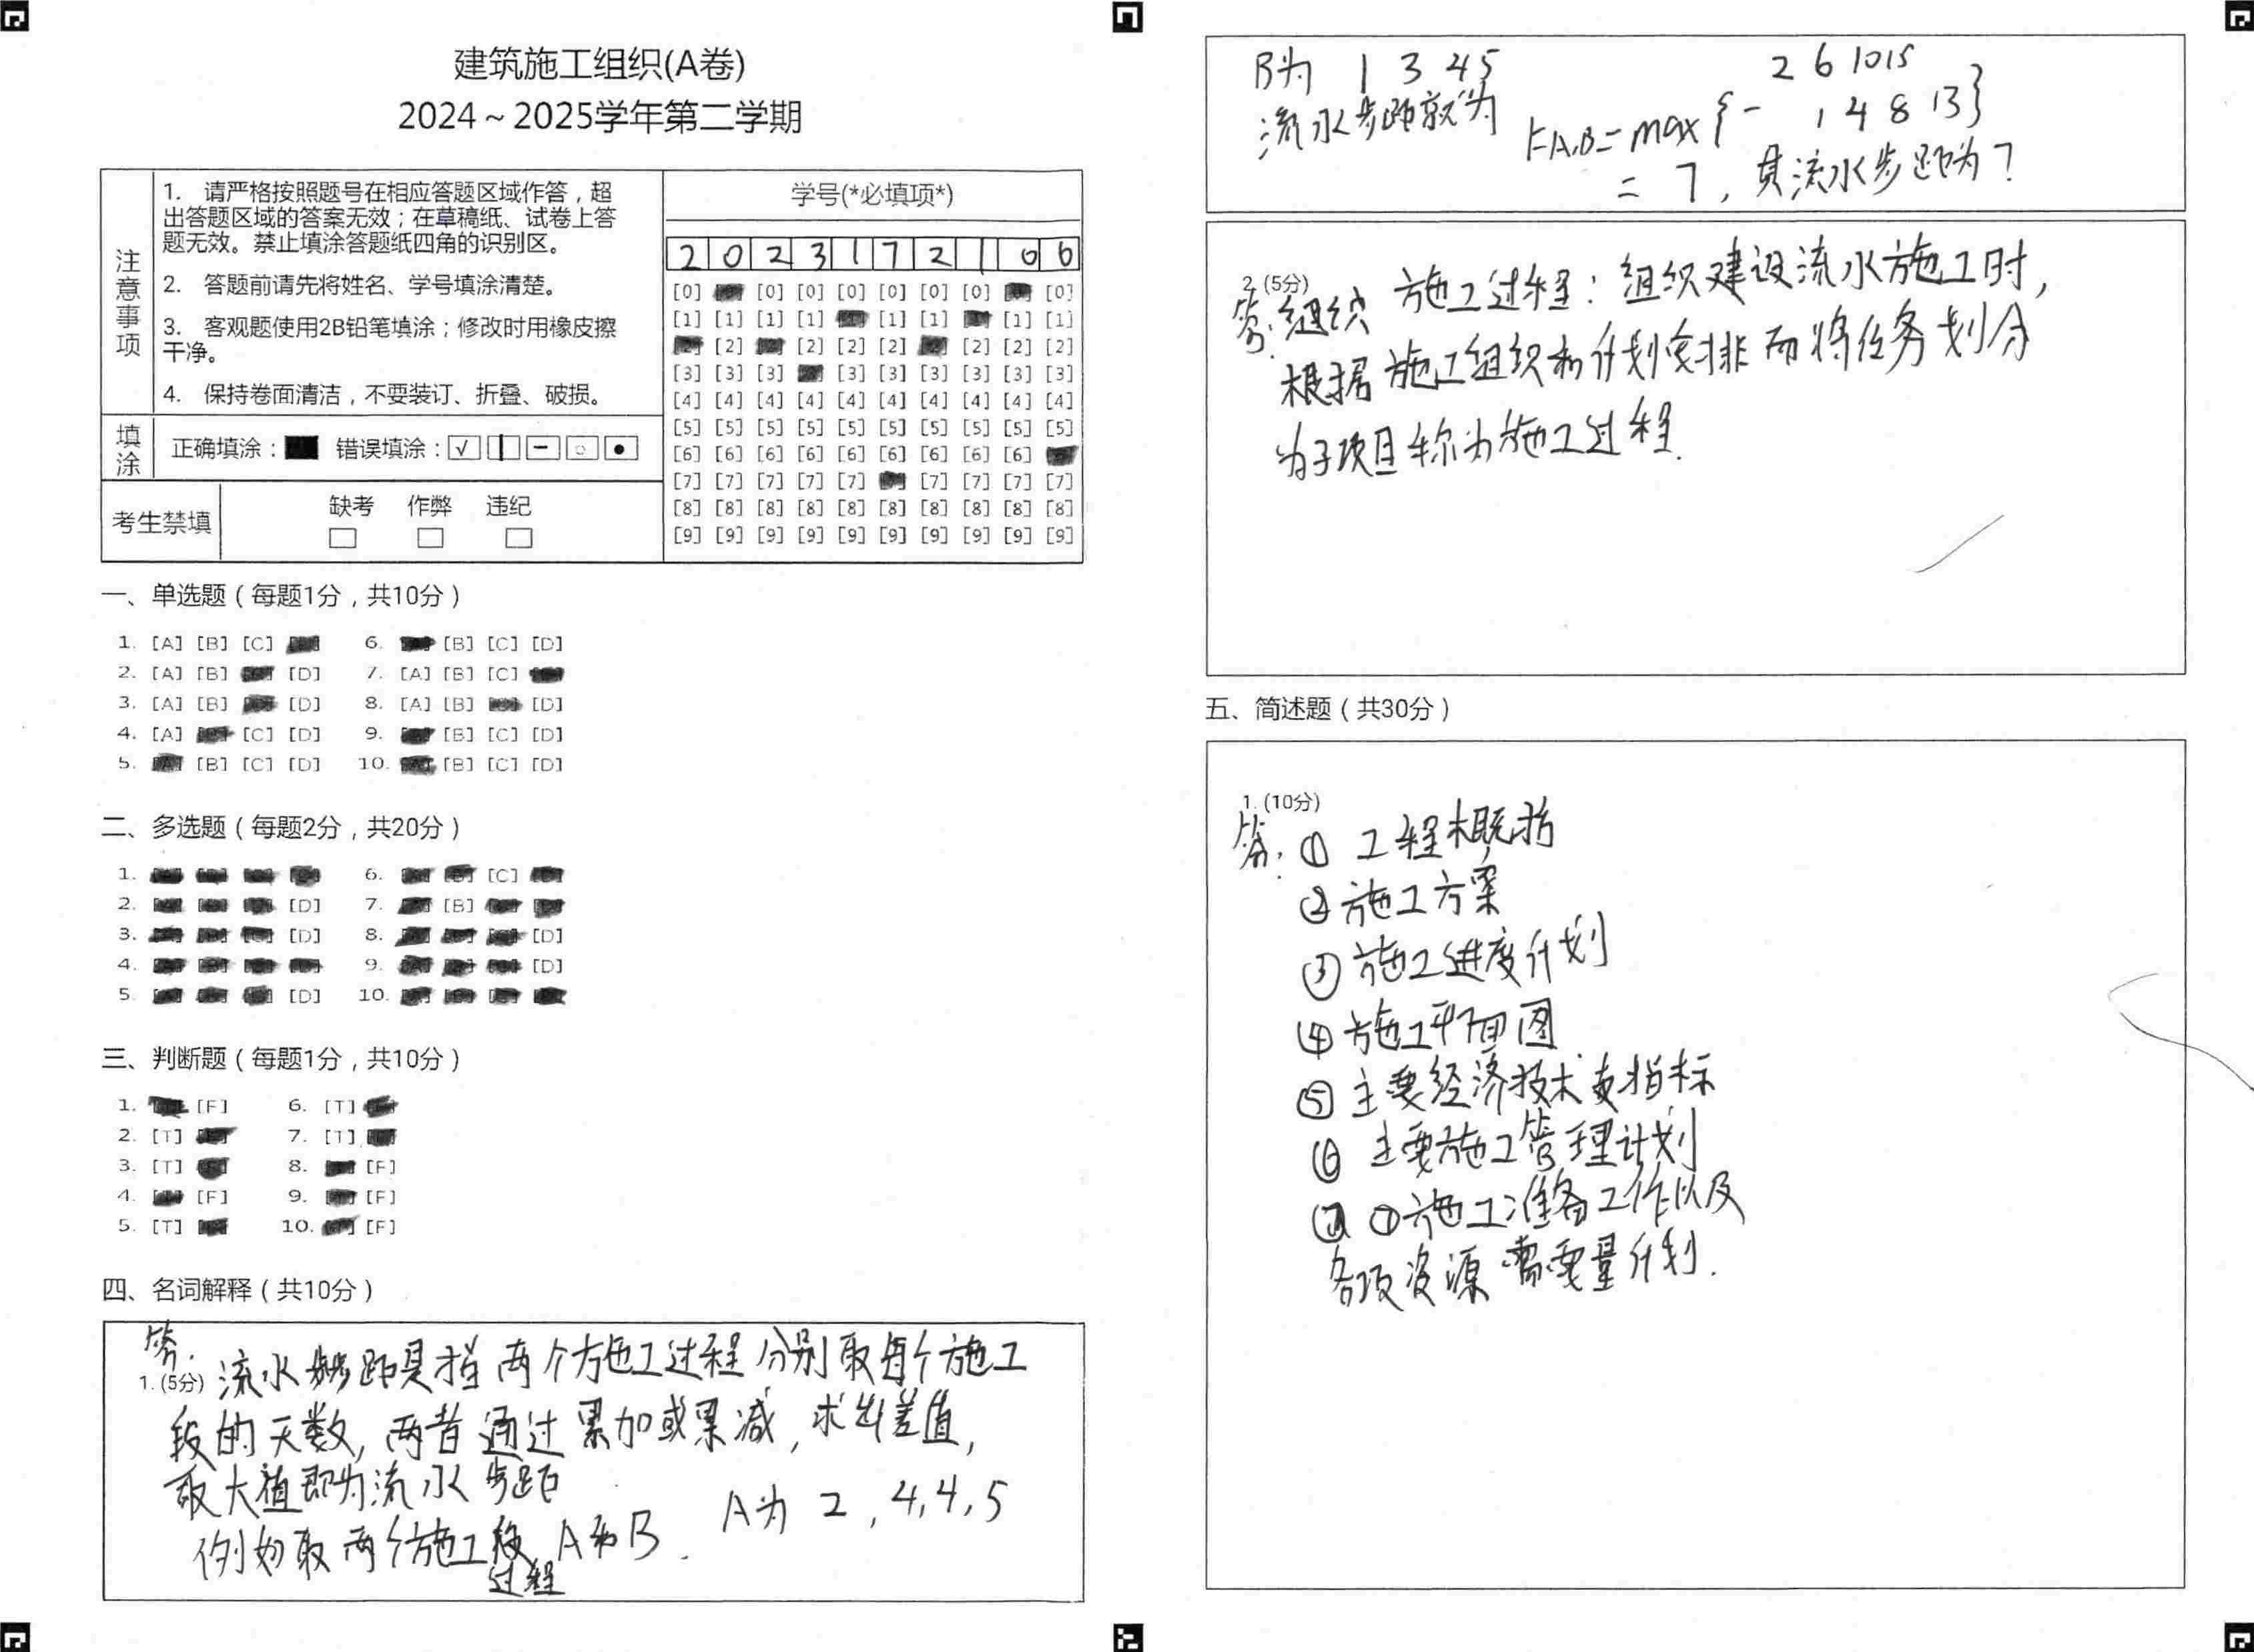 建筑施工组织(A卷)
2024～2025学年第二学期
注意事项
1. 请严格按照题号在相应答题区域作答，超
出答题区域的答案无效；在草稿纸、试卷上答
题无效。禁止填涂答题纸四角的识别区。
2. 答题前请先将姓名、学号填涂清楚。
3. 客观题使用2B铅笔填涂；修改时用橡皮擦
干净。
4. 保持卷面清洁，不要装订、折叠、破损。
填涂
正确填涂： 错误填涂：
考生禁填
缺考 作弊 违纪
学号(*必填项*)
2 0 2 3 1 7 2 1 0 6
[0] [0] [0] [0] [0] [0] [0] [0]
[1] [1] [1] [1] [1] [1] [1] [1]
[2] [2] [2] [2] [2] [2] [2]
[3] [3] [3] [3] [3] [3] [3] [3] [3]
[4] [4] [4] [4] [4] [4] [4] [4] [4] [4]
[5] [5] [5] [5] [5] [5] [5] [5] [5] [5]
[6] [6] [6] [6] [6] [6] [6] [6] [6]
[7] [7] [7] [7] [7] [7] [7] [7] [7]
[8] [8] [8] [8] [8] [8] [8] [8] [8] [8]
[9] [9] [9] [9] [9] [9] [9] [9] [9] [9]
一、单选题（每题1分，共10分）
1. [A] [B] [C] 6. [B] [C] [D]
2. [A] [B] [D] 7. [A] [B] [C]
3. [A] [B] [D] 8. [A] [B] [D]
4. [A] [C] [D] 9. [B] [C] [D]
5. [B] [C] [D] 10. [B] [C] [D]
二、多选题（每题2分，共20分）
1. 6. [C]
2. [D] 7. [B]
3. [D] 8. [D]
4. 9. [D]
5. [D] 10.
三、判断题（每题1分，共10分）
1. [F] 6. [T]
2. [T] 7. [T]
3. [T] 8. [F]
4. [F] 9. [F]
5. [T] 10. [F]
四、名词解释（共10分）
答.
1. (5分) 流水步距是指两个施工过程分别取每个施工
段的天数,两者通过累加或累减,求出差值,
取大值即为流水步距
例如取两个施工 A和B. A为 2,4,4,5
过程
B为 1 3 4 5
流水步距就为
2 6 10 15
KA,B=max{- 1 4 8 13}
= 7, 其流水步距为7
2. (5分)
答: 组织 施工过程：组织建设流水施工时,
根据施工组织和计划安排而将任务划分
为子项目称为施工过程.
五、简述题（共30分）
1. (10分)
答. ① 工程概括
② 施工方案
③ 施工进度计划
④ 施工平面图
⑤ 主要经济技术指标
⑥ 主要施工管理计划
⑦ 施工准备工作以及
各项资源需要量计划.